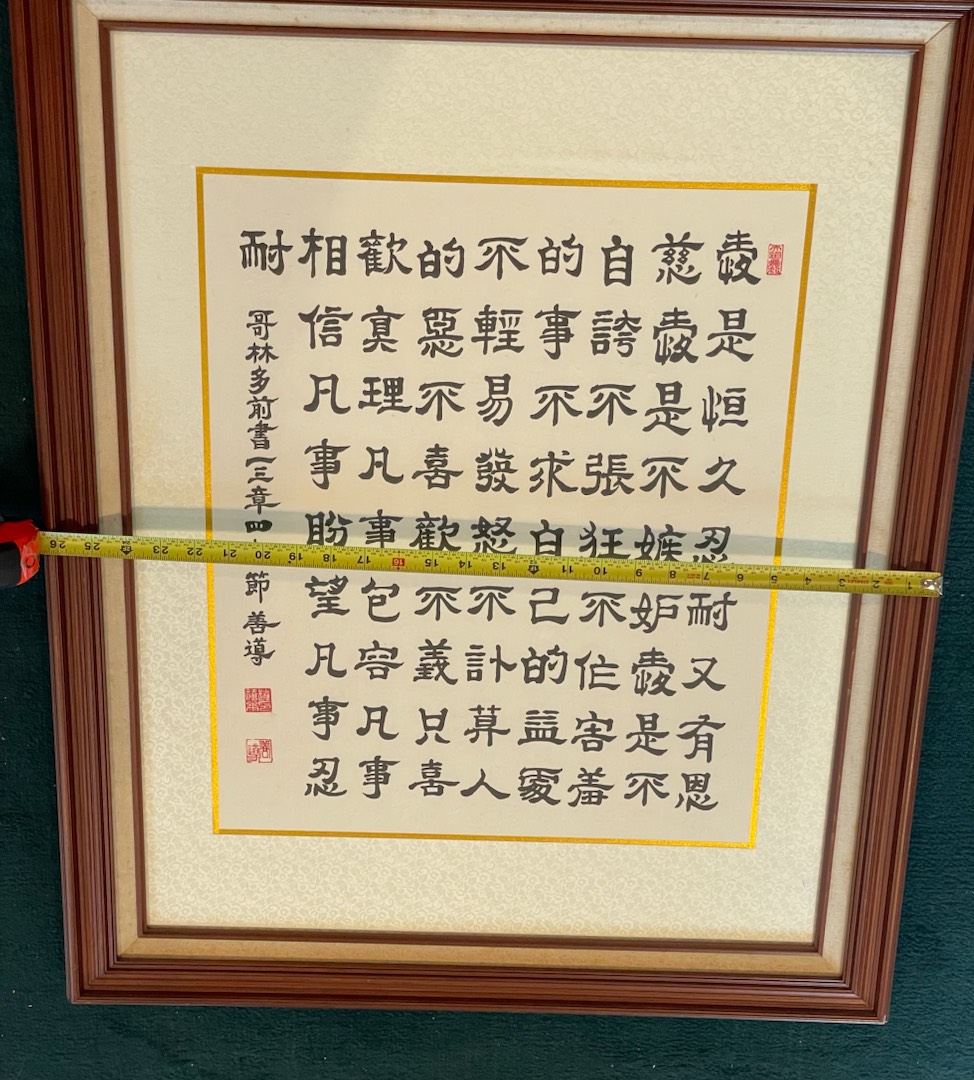 愛是恒久忍耐又有恩
慈愛是不嫉妒愛是不
自誇不張狂不作害羞
的事不求自己的益處
不輕易發怒不計算人
的惡不喜歡不義只喜
歡真理凡事包容凡事
相信凡事盼望凡事忍
耐
哥林多前書一三章四 節 善導
26 25 23 22 21 20 19 18 17 16 15 14 13 11 10 9 8 7 6 5 4 3 2